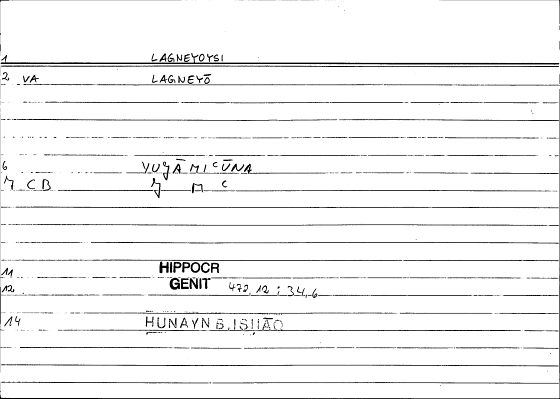 1 LAGNEYOYSI
2 VA LAGNEYŌ
6 YUǧĀMIᶜŪNA
7 CB ǧ M ᶜ
11 HIPPOCR
12 GENIT 472,12 : 34,6
14 HUNAYN B. ISHĀQ